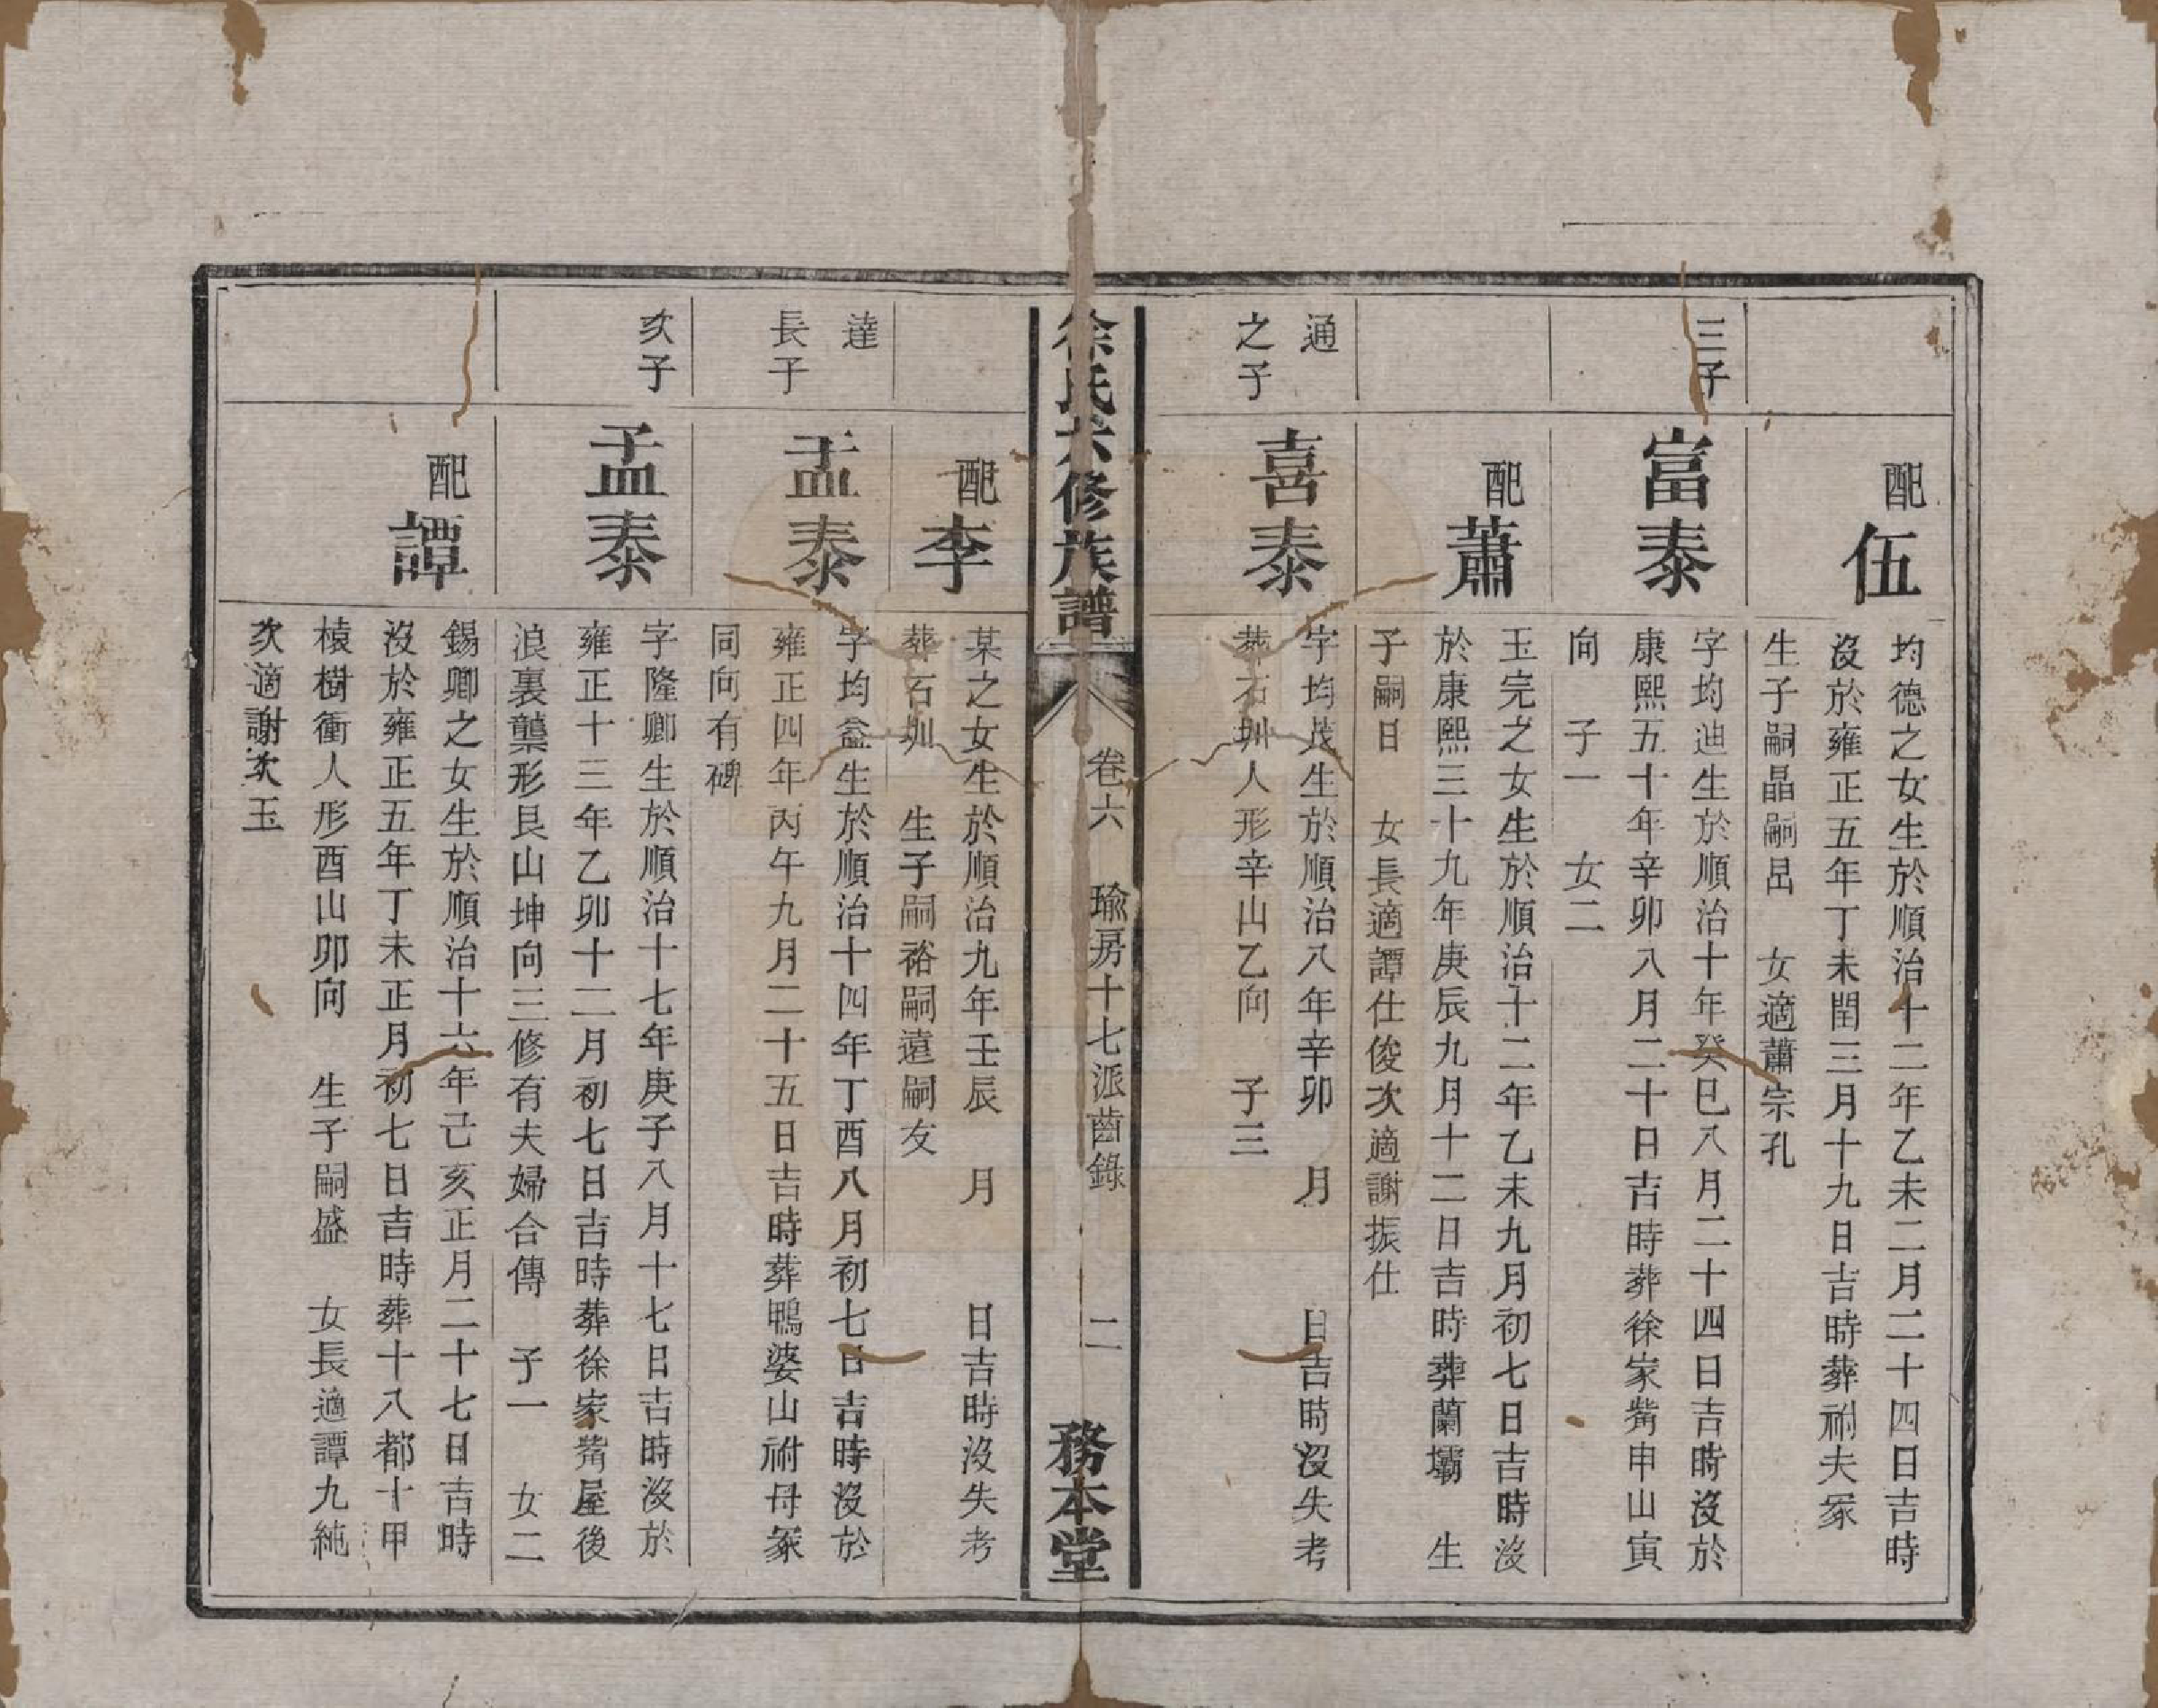 配伍
均德之女生於順治十二年乙未二月二十四日吉時
沒於雍正五年丁未閏三月十九日吉時葬祔夫冢
生子嗣晶嗣昌 女適蕭宗孔
三子
富泰
字均迪生於順治十年癸巳八月二十四日吉時沒於
康熙五十年辛卯八月二十日吉時葬徐家觜申山寅
向 子一 女二
配蕭
玉完之女生於順治十二年乙未九月初七日吉時沒
於康熙三十九年庚辰九月十二日吉時葬蘭壩 生
子嗣日 女長適譚仕俊次適謝振仕
通
之子
喜泰
字均茂生於順治八年辛卯 月 日吉時沒失考
葬石圳人形辛山乙向 子三
徐氏六修族譜
卷六 瑜房十七派齒錄 二
務本堂
配李
某之女生於順治九年壬辰 月 日吉時沒失考
葬石圳 生子嗣裕嗣遠嗣友
達
長子
孟泰
字均益生於順治十四年丁酉八月初七日吉時沒於
雍正四年丙午九月二十五日吉時葬鴨婆山祔母冢
同向有碑
次子
孟泰
字隆卿生於順治十七年庚子八月十七日吉時沒於
雍正十三年乙卯十二月初七日吉時葬徐家觜屋後
浪裏龔形艮山坤向三修有夫婦合傳 子一 女二
配譚
錫卿之女生於順治十六年己亥正月二十七日吉時
沒於雍正五年丁未正月初七日吉時葬十八都十甲
樹衝人形酉山卯向 生子嗣盛 女長適譚九純
次適謝次玉